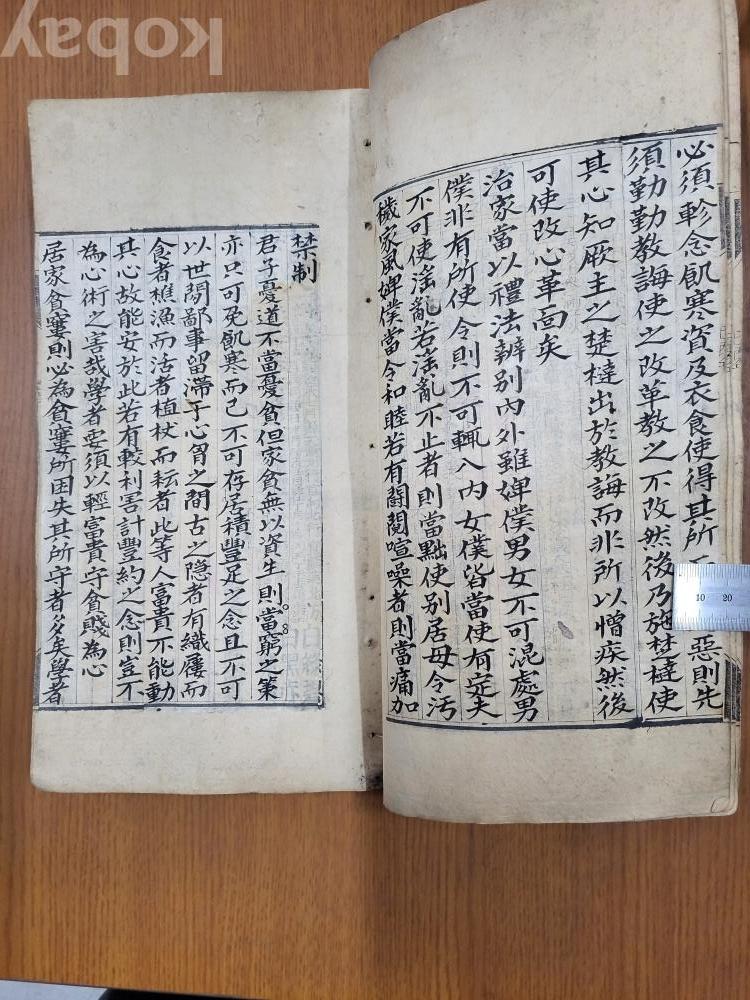 必須軫念飢寒資及衣食使得其所
惡則先
須勤勤教誨使之改革教之不改然後乃施楚撻使
其心知厥主之楚撻出於教誨而非所以憎疾然後
可使改心革面矣
治家當以禮法辨別內外雖婢僕男女不可混處男
僕非有所使令則不可輒入內女僕皆當使有定夫
不可使淫亂若淫亂不止者則當黜使別居毋令汚
穢家風婢僕當令和睦若有鬪鬩喧噪者則當痛加
禁制
君子憂道不當憂貧但家貧無以資生則當窮之策
亦只可免飢寒而已不可存居積豊足之念且不可
以世間鄙事留滯于心胷之間古之隐者有織屨而
食者樵漁而活者植杖而耘者此等人富貴不能動
其心故能安於此若有較利害計豊約之念則豈不
為心術之害哉學者要須以輕富貴守貧賤為心
居家貧窶則必為貧窶所困失其所守者多矣學者
10 20
kobay